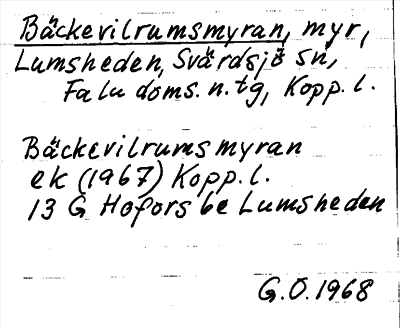 Bäckevilrumsmyran, myr,
Lumsheden, Svärdsjö sn,
Falu doms. n. tg, Kopp. l.
Bäckevilrumsmyran
ek (1967) Kopp. l.
13 G Hofors 6e Lumsheden
G.O. 1968